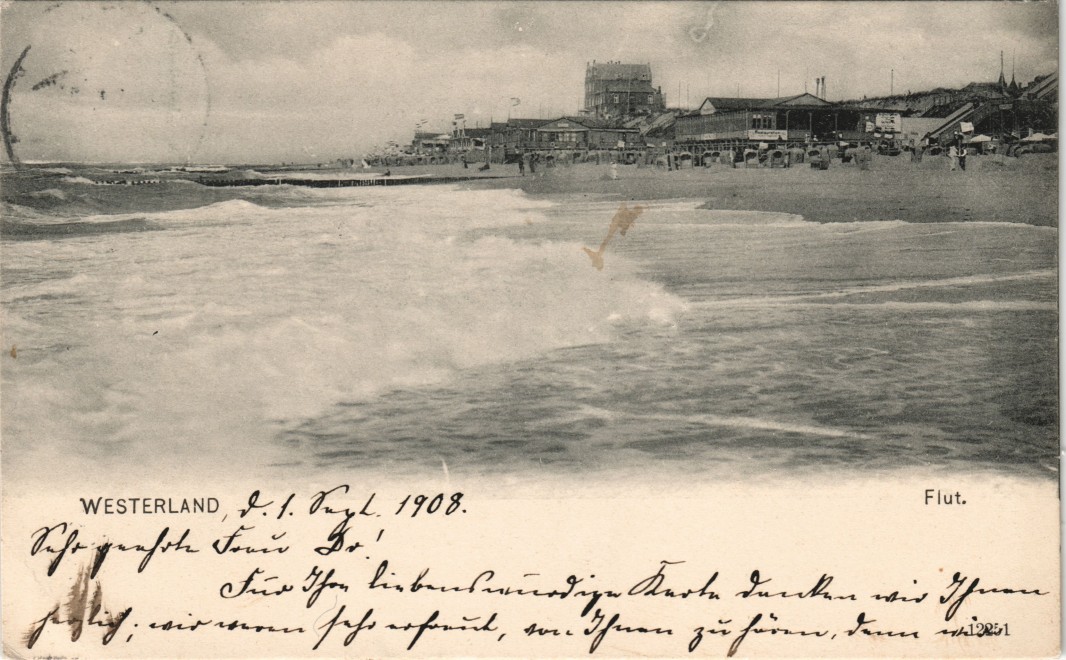 WESTERLAND, d. 1. Sept. 1908.
Flut.
Sehr geehrte Frau Dr!
Für Ihre liebenswürdige Karte danken wir Ihnen
herzlich; wir waren sehr erfreut, von Ihnen zu hören, denn wir
12251